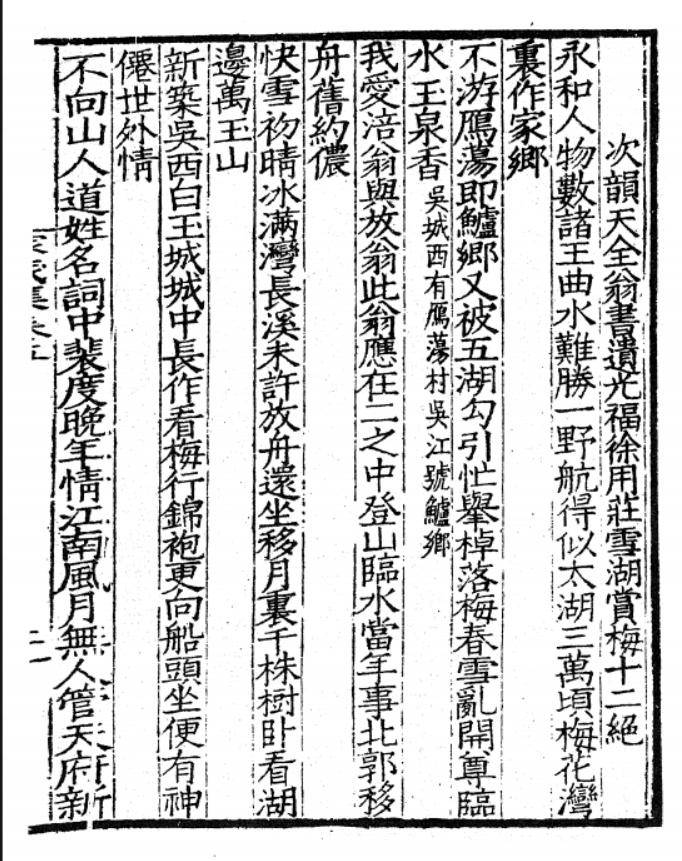 次韻天全翁書遺光福徐用莊雪湖賞梅十二絕
永和人物數諸王曲水難勝一野航得似太湖三萬頃梅花灣
裏作家鄉
不游鴈蕩即鱸鄉又被五湖勾引忙舉棹落梅春雪亂開尊臨
水玉泉香吳城西有鴈蕩村吳江號鱸鄉
我愛涪翁與放翁此翁應在二之中登山臨水當年事北郭移
舟舊約儂
快雪初晴冰滿灣長溪未許放舟還坐移月裏千株樹卧看湖
邊萬玉山
新築吳西白玉城城中長作看梅行錦袍更向船頭坐便有神
僊世外情
不向山人道姓名詞中裴度晚年情江南風月無人管天府新